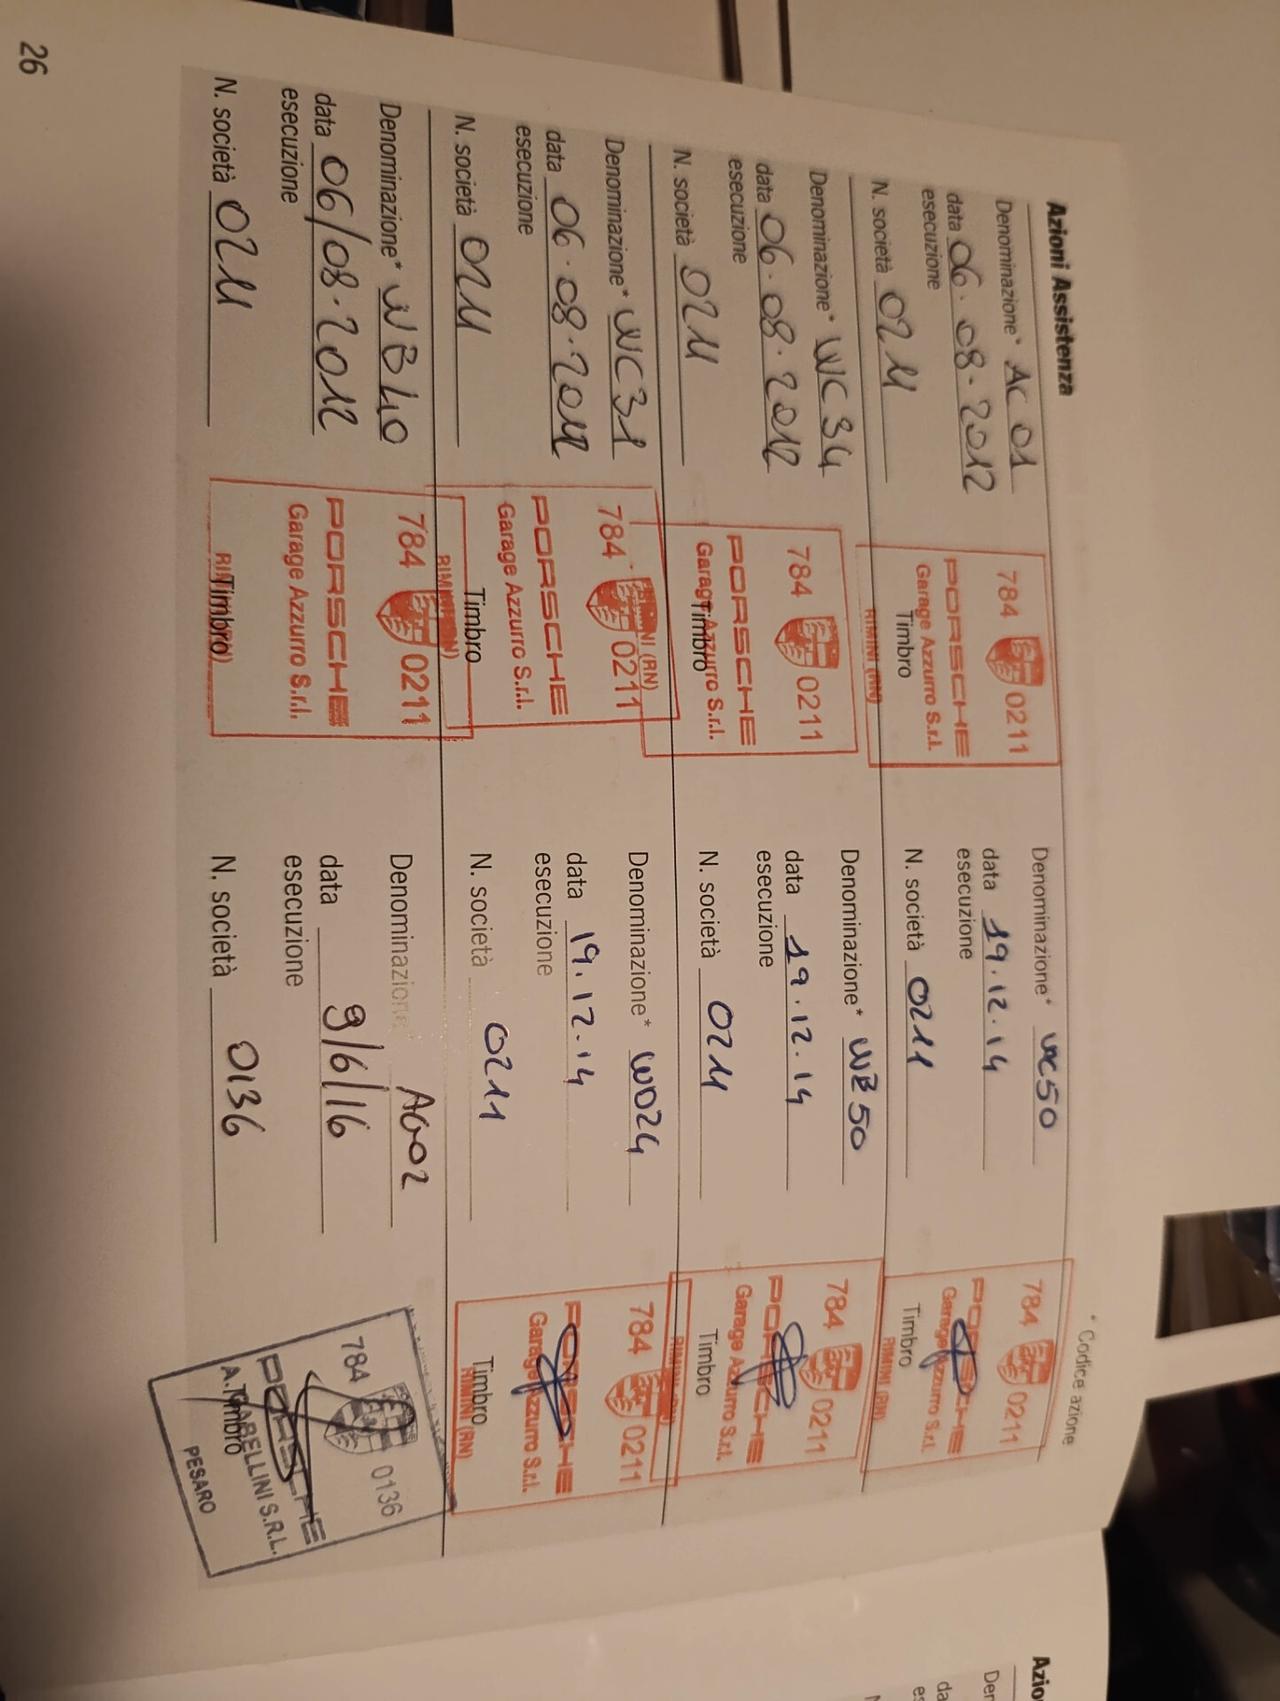 Azioni Assistenza
* Codice azione
Denominazione* AC 01
data 06.08.2012
esecuzione
N. società 0211
784 0211
PORSCHE
Garage Azzurro S.r.l.
Timbro
RIMINI (RN)
Denominazione* WC50
data 19.12.14
esecuzione
N. società 0211
784 0211
PORSCHE
Garage Azzurro S.r.l.
Timbro
RIMINI (RN)
Denominazione* WC34
data 06.08.2012
esecuzione
N. società 0211
784 0211
PORSCHE
Garage Azzurro S.r.l.
Timbro
RIMINI (RN)
Denominazione* WB50
data 19.12.14
esecuzione
N. società 0211
784 0211
PORSCHE
Garage Azzurro S.r.l.
Timbro
RIMINI (RN)
Denominazione* WC31
data 06.08.2012
esecuzione
N. società 0211
784 0211
PORSCHE
Garage Azzurro S.r.l.
Timbro
RIMINI (RN)
Denominazione* WD24
data 19.12.14
esecuzione
N. società 0211
784 0211
PORSCHE
Garage Azzurro S.r.l.
Timbro
RIMINI (RN)
Denominazione* WB40
data 06/08.2012
esecuzione
N. società 0211
784 0211
PORSCHE
Garage Azzurro S.r.l.
Timbro
Denominazione AG02
data 9/6/16
esecuzione
N. società 0136
784 0136
PORSCHE
Timbro
PESARO
26